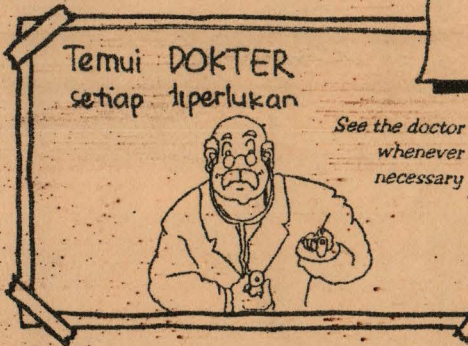 Temui DOKTER
setiap diperlukan
See the doctor
whenever
necessary